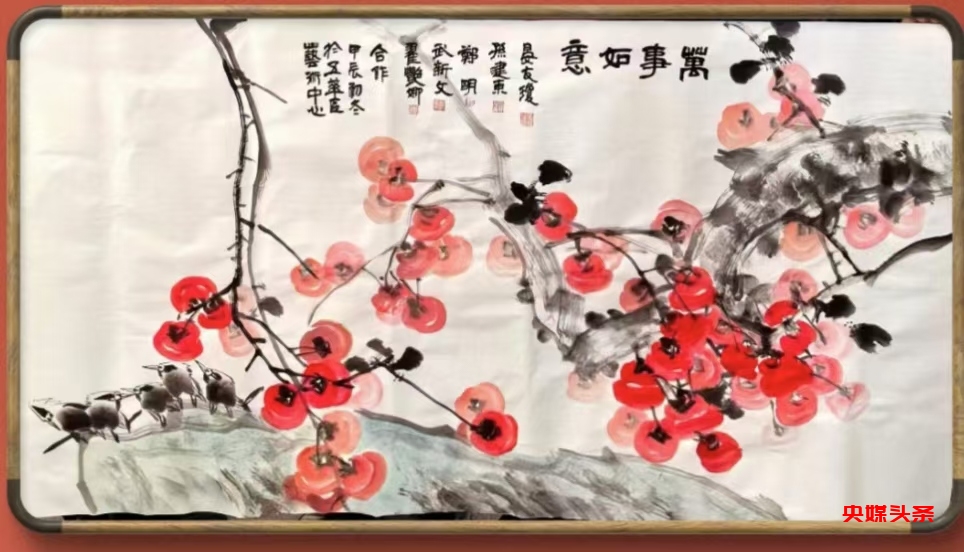 萬事如意
晏友瓊
孫建東
鄭明
武新文
翟艷卿
合作
甲辰初冬
於五華區
藝術中心
央媒头条